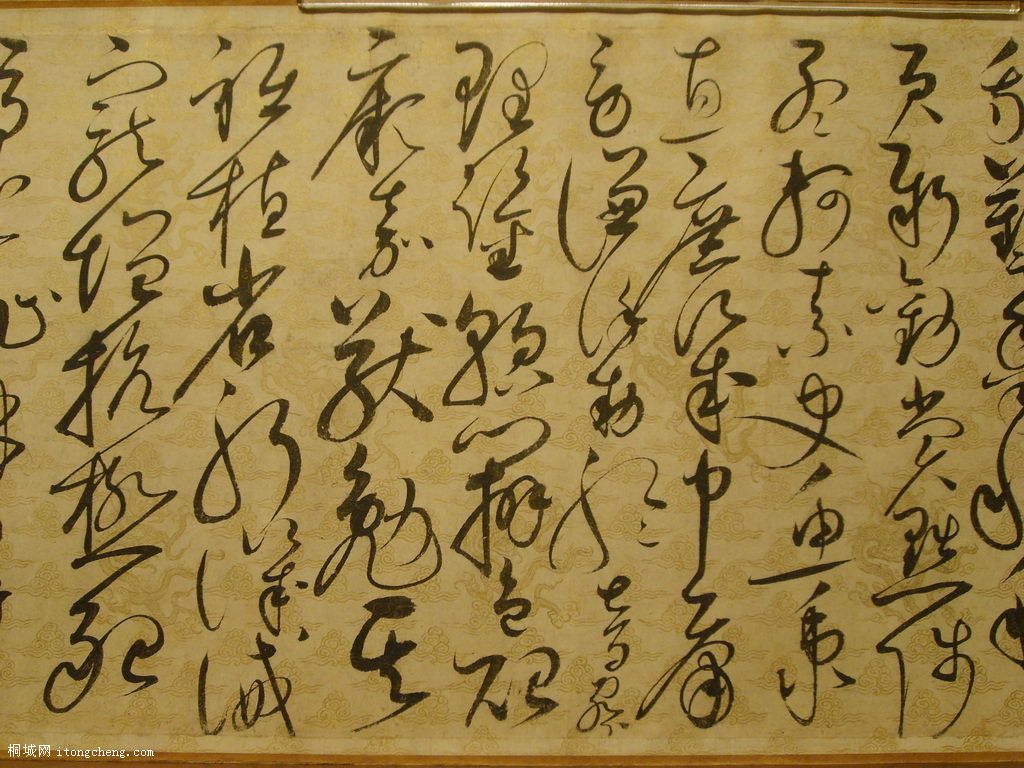 貢新勸賞黜陟
孟軻素史魚秉
直庶幾中庸
勞謙謹敕聆音察
理鑒貌辨色貽
厥嘉猷勉其
祗植省躬譏誡
寵增抗極殆
桐城网 itongcheng.com